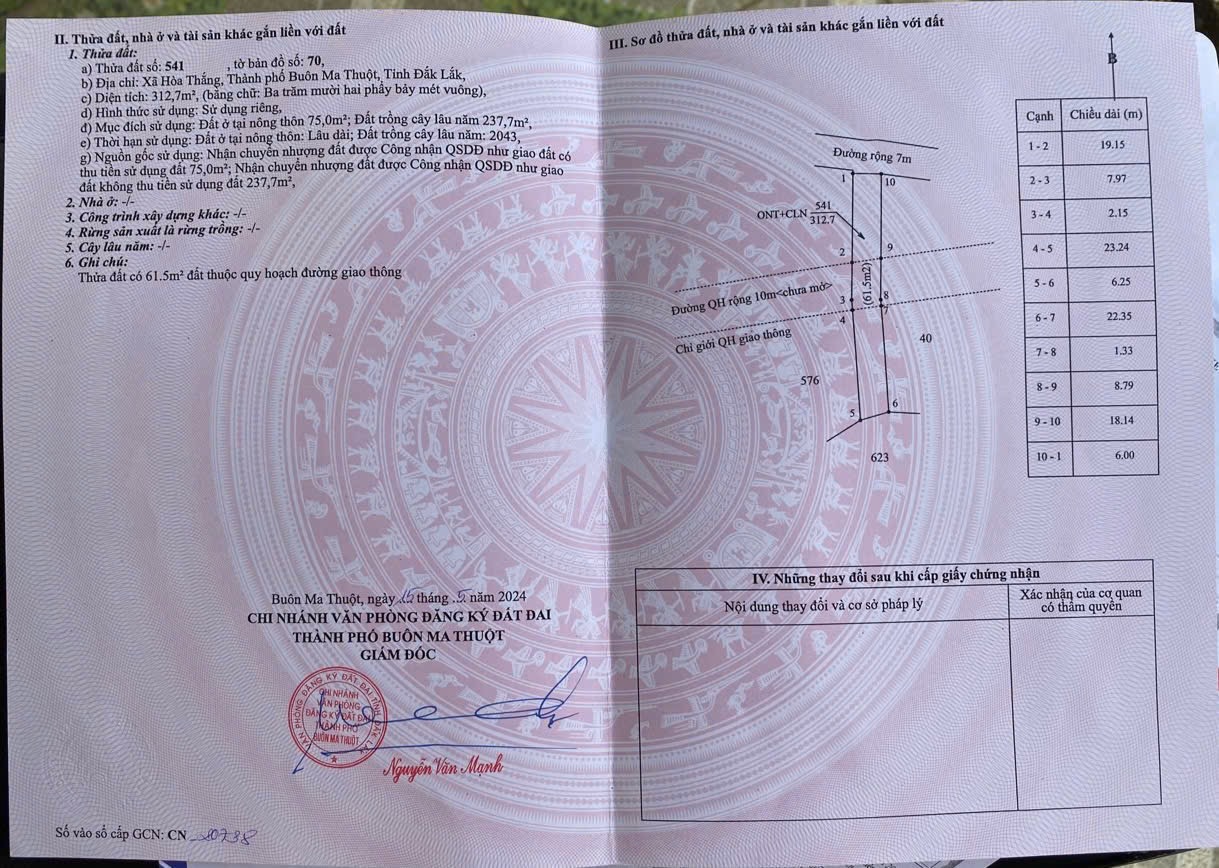 II. Thửa đất, nhà ở và tài sản khác gắn liền với đất
1. Thửa đất:
a) Thửa đất số: 541 , tờ bản đồ số: 70,
b) Địa chỉ: Xã Hòa Thắng, Thành phố Buôn Ma Thuột, Tỉnh Đắk Lắk,
c) Diện tích: 312,7m², (bằng chữ: Ba trăm mười hai phẩy bảy mét vuông),
d) Hình thức sử dụng: Sử dụng riêng,
đ) Mục đích sử dụng: Đất ở tại nông thôn 75,0m²; Đất trồng cây lâu năm 237,7m²,
e) Thời hạn sử dụng: Đất ở tại nông thôn: Lâu dài; Đất trồng cây lâu năm: 2043,
g) Nguồn gốc sử dụng: Nhận chuyển nhượng đất được Công nhận QSDĐ như giao đất có
thu tiền sử dụng đất 75,0m²; Nhận chuyển nhượng đất được Công nhận QSDĐ như giao
đất không thu tiền sử dụng đất 237,7m²,
2. Nhà ở: -/-
3. Công trình xây dựng khác: -/-
4. Rừng sản xuất là rừng trồng: -/-
5. Cây lâu năm: -/-
6. Ghi chú:
Thửa đất có 61.5m² đất thuộc quy hoạch đường giao thông
Buôn Ma Thuột, ngày 15 tháng .5. năm 2024
CHI NHÁNH VĂN PHÒNG ĐĂNG KÝ ĐẤT ĐAI
THÀNH PHỐ BUÔN MA THUỘT
GIÁM ĐỐC
VĂN PHÒNG ĐĂNG KÝ ĐẤT ĐAI TỈNH ĐẮK LẮK
CHI NHÁNH
VĂN PHÒNG
ĐĂNG KÝ ĐẤT ĐAI
THÀNH PHỐ
BUÔN MA THUỘT
Nguyễn Văn Mạnh
Số vào sổ cấp GCN: CN 20738
III. Sơ đồ thửa đất, nhà ở và tài sản khác gắn liền với đất
B
Đường rộng 7m
1
10
ONT+CLN 541
312.7
2
9
(61.5m2)
Đường QH rộng 10m<chưa mở>
3
8
7
4
Chỉ giới QH giao thông
40
576
5
6
623
Cạnh Chiều dài (m)
1 - 2 19.15
2 - 3 7.97
3 - 4 2.15
4 - 5 23.24
5 - 6 6.25
6 - 7 22.35
7 - 8 1.33
8 - 9 8.79
9 - 10 18.14
10 - 1 6.00
IV. Những thay đổi sau khi cấp giấy chứng nhận
Nội dung thay đổi và cơ sở pháp lý
Xác nhận của cơ quan
có thẩm quyền